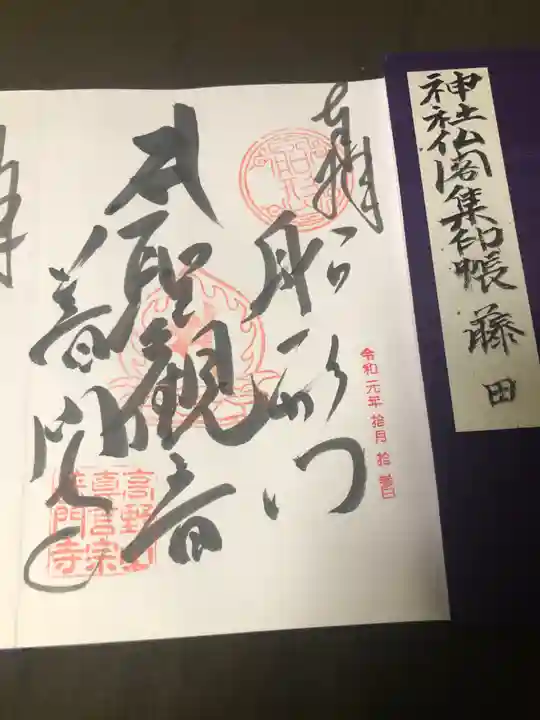 神社仏閣集印帳 藤田
奉拝
船形山
令和元年拾月拾
聖観音
普門寺
高野山
真言宗
普門寺